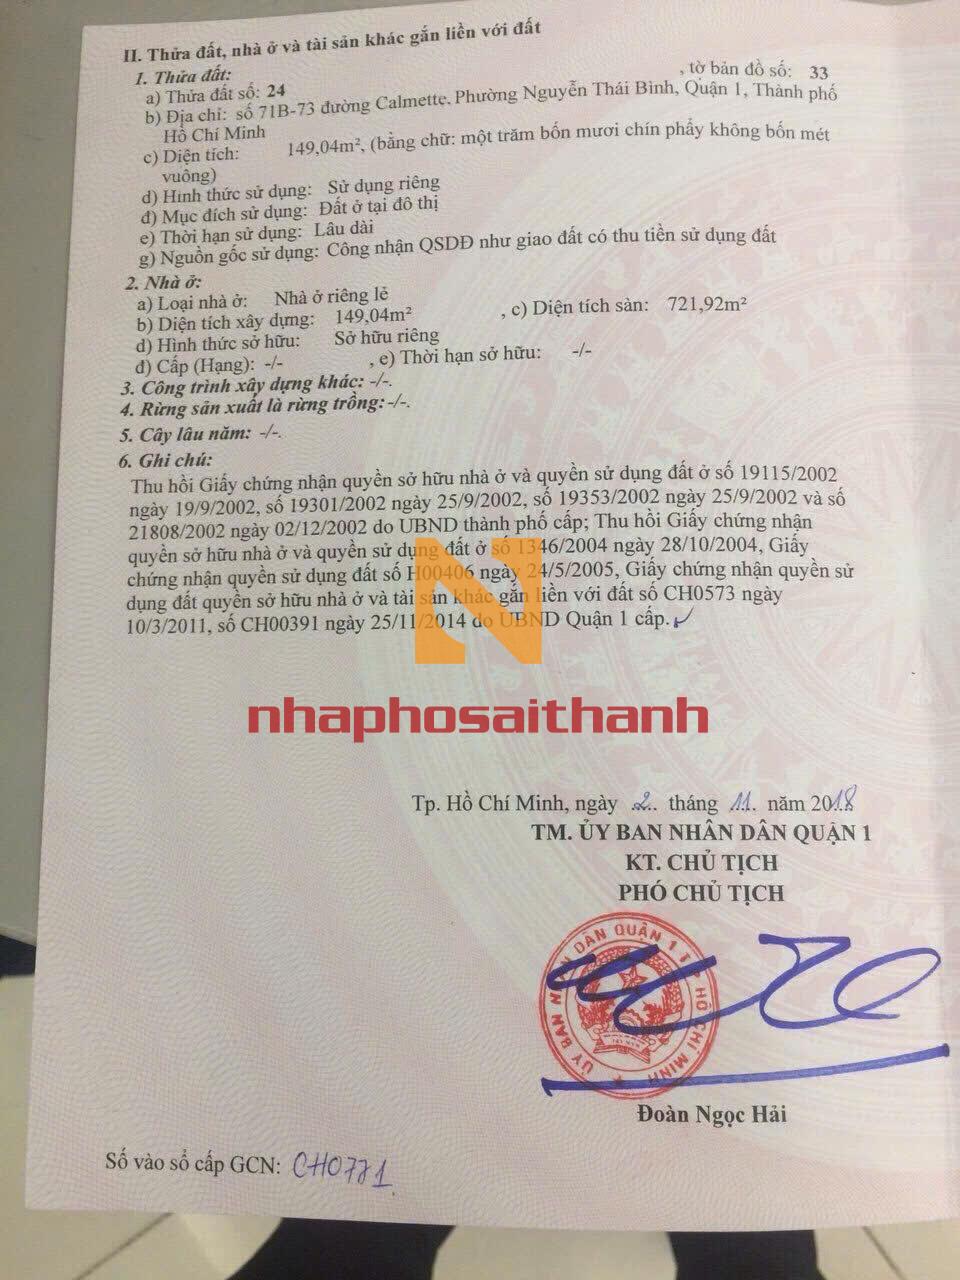 II. Thửa đất, nhà ở và tài sản khác gắn liền với đất
1. Thửa đất:
a) Thửa đất số: 24 , tờ bản đồ số: 33
b) Địa chỉ: số 71B-73 đường Calmette, Phường Nguyễn Thái Bình, Quận 1, Thành phố
Hồ Chí Minh
c) Diện tích: 149,04m², (bằng chữ: một trăm bốn mươi chín phẩy không bốn mét
vuông)
d) Hình thức sử dụng: Sử dụng riêng
đ) Mục đích sử dụng: Đất ở tại đô thị
e) Thời hạn sử dụng: Lâu dài
g) Nguồn gốc sử dụng: Công nhận QSDĐ như giao đất có thu tiền sử dụng đất
2. Nhà ở:
a) Loại nhà ở: Nhà ở riêng lẻ
b) Diện tích xây dựng: 149,04m² , c) Diện tích sàn: 721,92m²
d) Hình thức sở hữu: Sở hữu riêng
đ) Cấp (Hạng): -/- , e) Thời hạn sở hữu: -/-
3. Công trình xây dựng khác: -/-.
4. Rừng sản xuất là rừng trồng: -/-.
5. Cây lâu năm: -/-.
6. Ghi chú:
Thu hồi Giấy chứng nhận quyền sở hữu nhà ở và quyền sử dụng đất ở số 19115/2002
ngày 19/9/2002, số 19301/2002 ngày 25/9/2002, số 19353/2002 ngày 25/9/2002 và số
21808/2002 ngày 02/12/2002 do UBND thành phố cấp; Thu hồi Giấy chứng nhận
quyền sở hữu nhà ở và quyền sử dụng đất ở số 1346/2004 ngày 28/10/2004, Giấy
chứng nhận quyền sử dụng đất số H00406 ngày 24/5/2005, Giấy chứng nhận quyền sử
dụng đất quyền sở hữu nhà ở và tài sản khác gắn liền với đất số CH0573 ngày
10/3/2011, số CH00391 ngày 25/11/2014 do UBND Quận 1 cấp.
N
nhaphosaithanh
Tp. Hồ Chí Minh, ngày 2 tháng 11 năm 2018
TM. ỦY BAN NHÂN DÂN QUẬN 1
KT. CHỦ TỊCH
PHÓ CHỦ TỊCH
ỦY BAN NHÂN DÂN QUẬN 1 T.P HỒ CHÍ MINH
Đoàn Ngọc Hải
Số vào sổ cấp GCN: CH0771